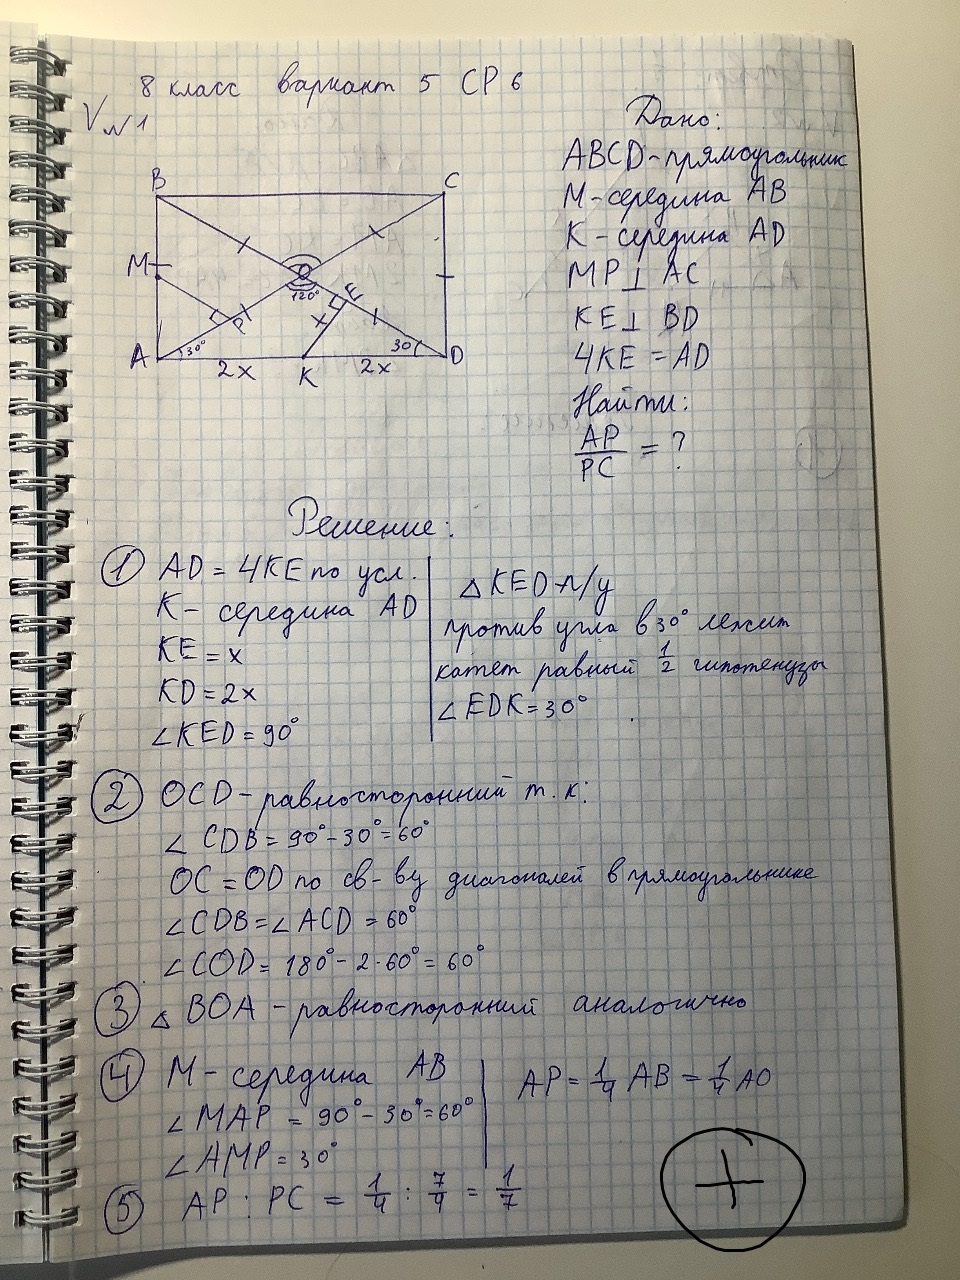 8 класс вариант 5 СР 6
V N1
Дано:
ABCD - прямоугольник
M - середина AB
K - середина AD
MP ⊥ AC
KE ⊥ BD
4KE = AD
Найти:
AP/PC = ?
B
C
M
O
120°
E
P
x
A
30°
30
D
2x
K
2x
Решение:
① AD = 4KE по усл.
K - середина AD
KE = x
KD = 2x
∠KED = 90°
△KED - п/у
против угла в 30° лежит
катет равный 1/2 гипотенузы
∠EDK = 30°
② OCD - равносторонний т.к:
∠CDB = 90° - 30° = 60°
OC = OD по св-ву диагоналей в прямоугольнике
∠CDB = ∠ACD = 60°
∠COD = 180° - 2·60° = 60°
③ △ BOA - равносторонний аналогично
④ M - середина AB
∠MAP = 90° - 30° = 60°
∠AMP = 30°
AP = 1/4 AB = 1/4 AO
⑤ AP : PC = 1/4 : 7/4 = 1/7
+